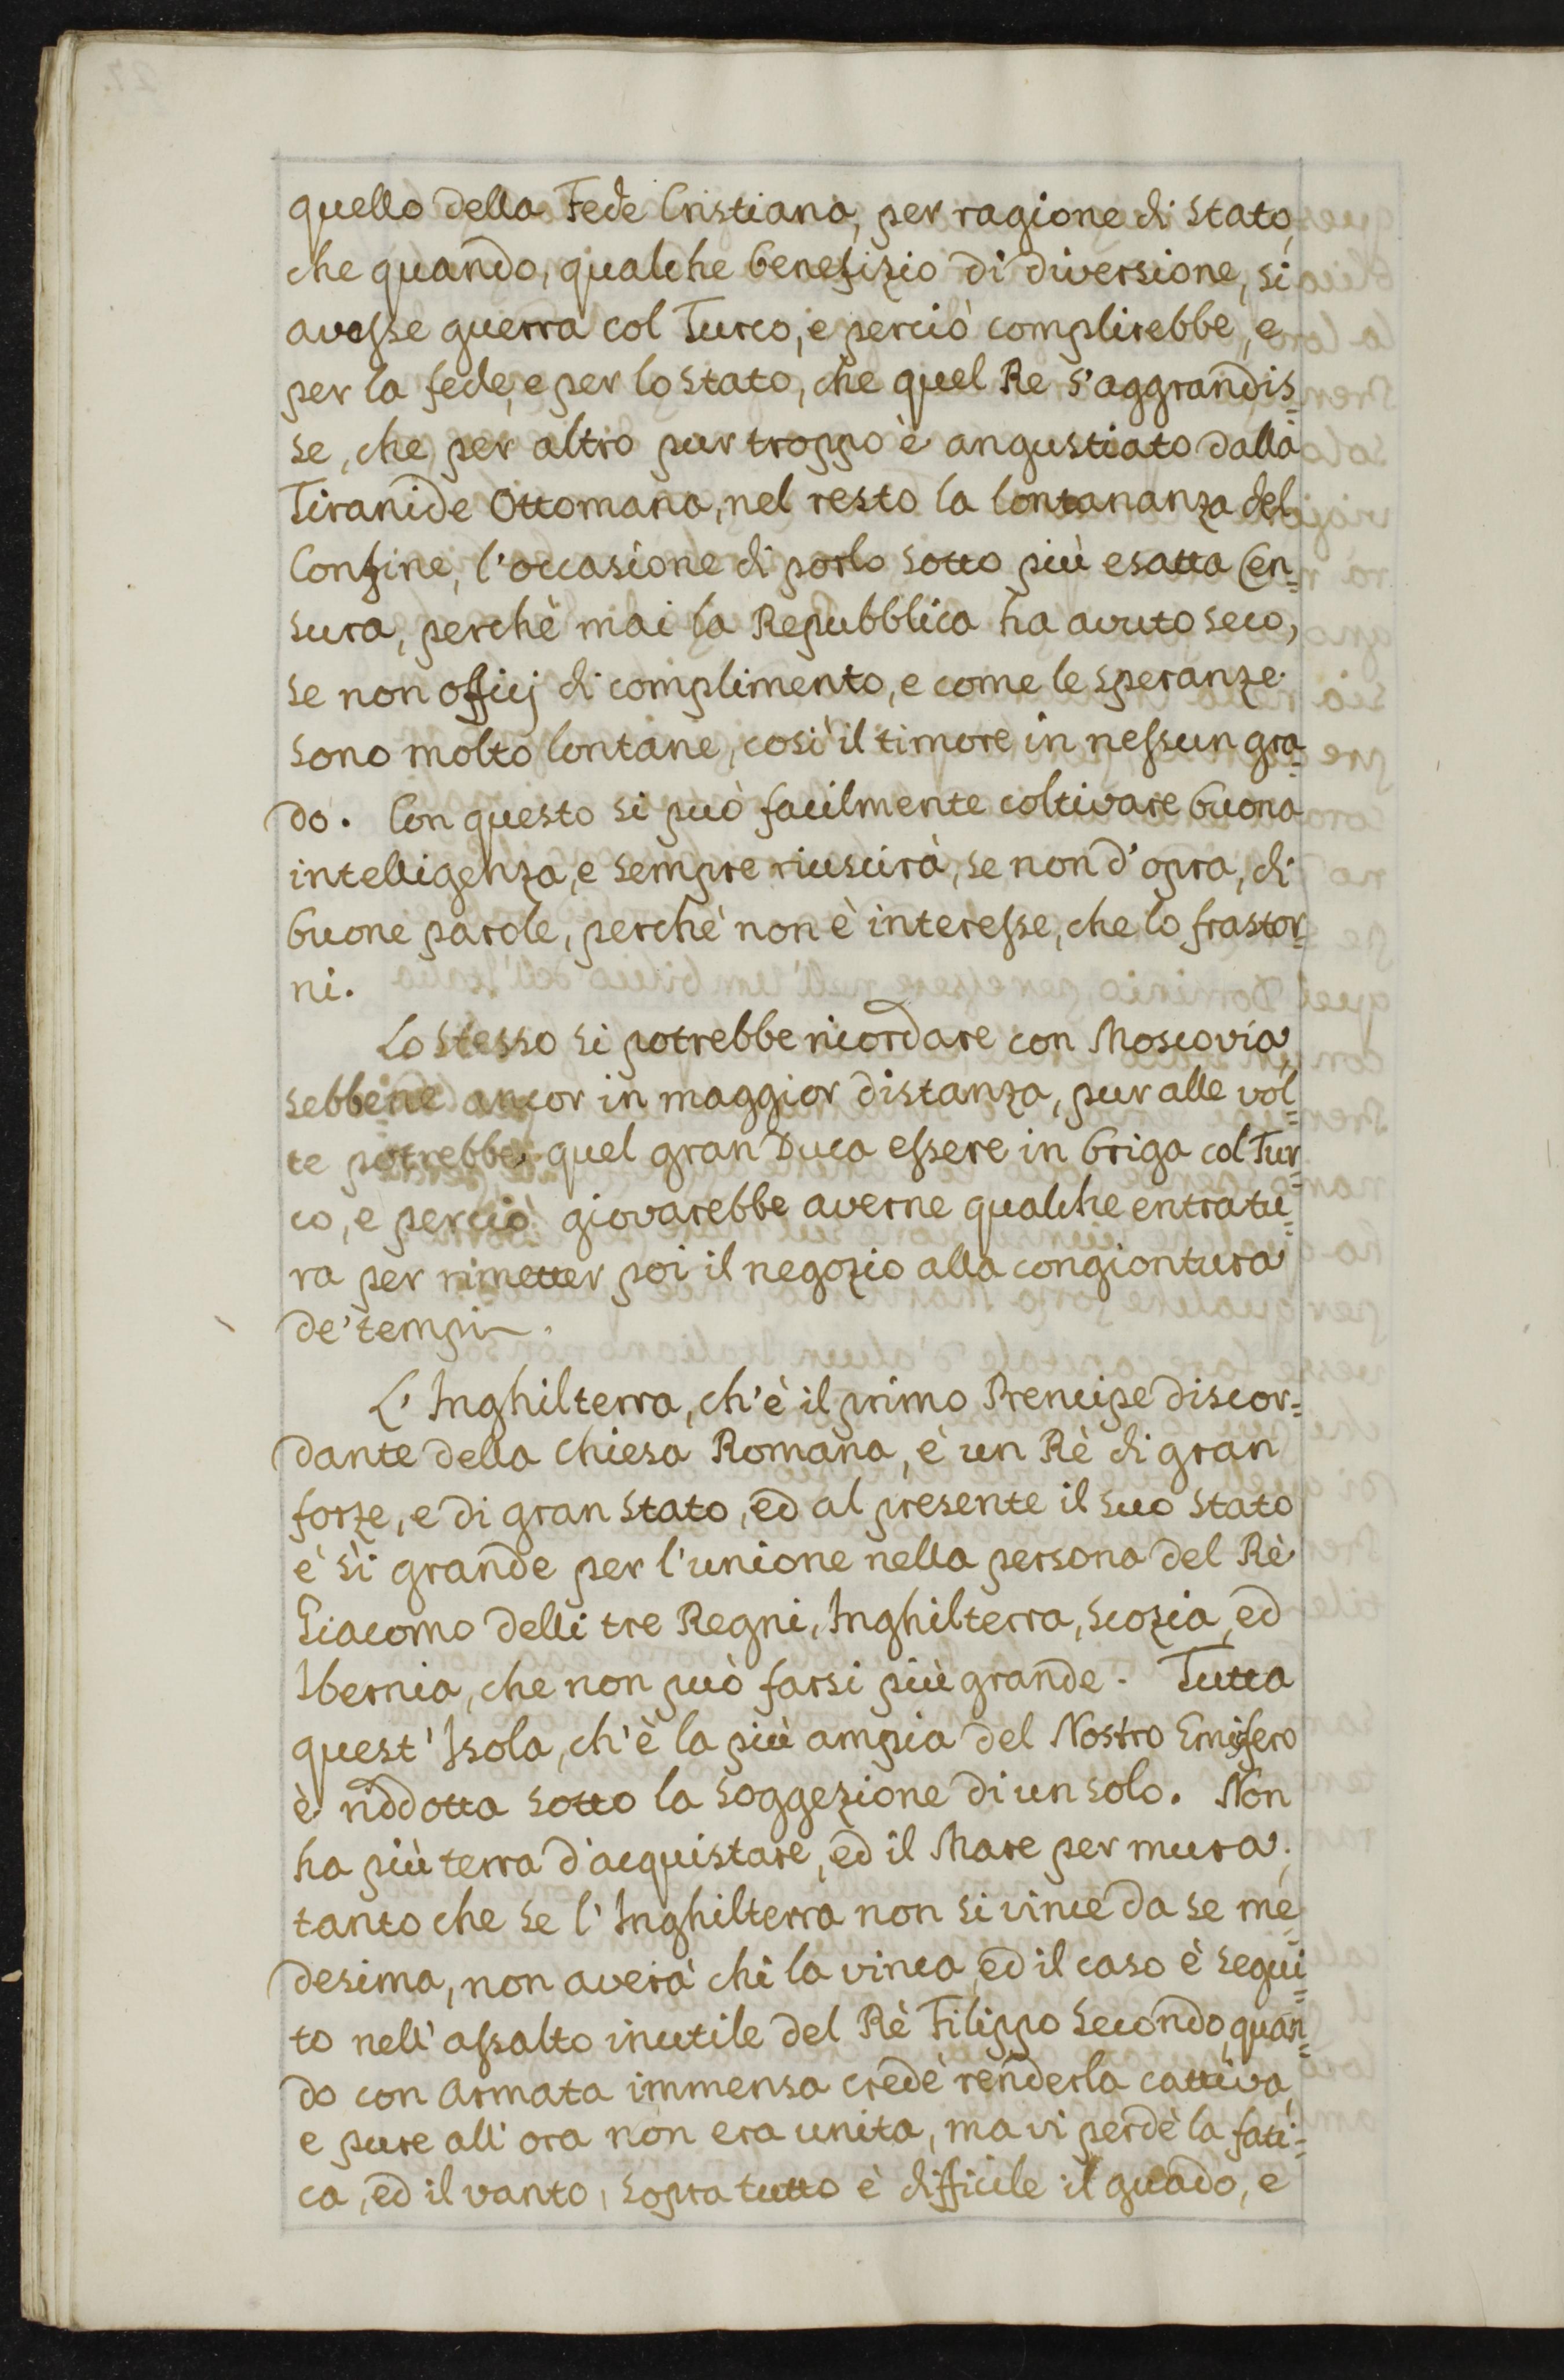 quello della Fede Cristiana, per ragione di Stato,
che quando, qualche benefizio di diversione, si
avesse guerra col Turco, e perciò complirebbe, e
per la fede, e per lo Stato, che quel Re s'aggrandis=
se, che per altro pur troppo è angustiato dalla
Tiranide Ottomana, nel resto la lontananza del
Confine, l'occasione di porlo sotto più esatta Cen=
sura, perchè mai la Repubblica ha avuto seco,
se non officj di complimento, e come le speranze
sono molto lontane, così il timore in nessun gra=
do. Con questo si può facilmente coltivare buona
intelligenza, e sempre riuscirà, se non d'opra, di
buone parole, perchè non è interesse, che lo frastor=
ni.
Lo stesso si potrebbe ricordare con Moscovia,
sebbene ancor in maggior distanza, pur alle vol=
te potrebbe quel gran Duca essere in briga col Tur=
co, e perciò giovarebbe averne qualche entratu=
ra per rimetter poi il negozio alla congiontura
de' tempi.
L'Inghilterra, ch'è il primo Prencipe discor=
dante della Chiesa Romana, è un Rè di gran
forze, e di gran Stato, ed al presente il suo Stato
è sì grande per l'unione nella persona del Rè
Giacomo delli tre Regni, Inghilterra, Scozia, ed
Ibernia, che non può farsi più grande. Tutta
quest'Isola, ch'è la più ampia del Nostro Emisfero
è riddotta sotto la soggezione di un solo. Non
ha più terra d'acquistare, ed il Mare per mura;
tanto che se l'Inghilterra non si vince da se me=
desima, non averà chi la vinca, ed il caso è segui=
to nell'assalto inutile del Rè Filippo Secondo, quan=
do con armata immensa credè renderla cattiva,
e pure all'ora non era unita, ma vi perdè la fati=
ca, ed il vanto, sopra tutto è difficile il guado, e